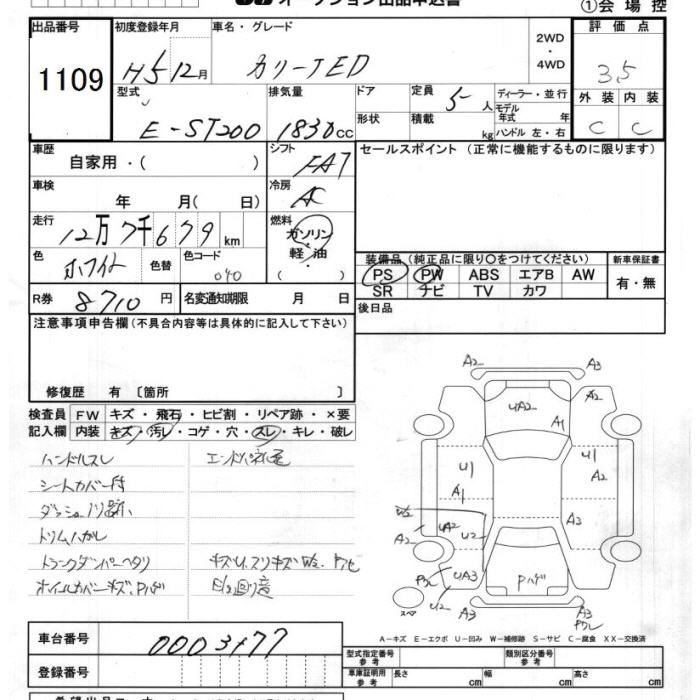 オークション出品申込書
①会場控
出品番号 初度登録年月 車名・グレード 2WD ・ 4WD 評価点
1109 H5 12月 カリーナED 3.5
型式 排気量 ドア 定員 5人 ディーラー・並行 外装 内装
E-ST200 1830cc 形状 積載 kg モデル年式 年 ハンドル 左・右 C C
車歴 自家用・( ) シフト FA7 セールスポイント(正常に機能するものに限ります)
車検 年 月( 日) 冷房 AC
走行 12万7千679km 燃料 ガソリン・軽油・( )
色 ホワイト 色替 色コード 040
装備品(純正品に限り○をつけてください) 新車保証書
PS PW ABS エアB AW 有・無
SR ナビ TV カワ
R券 8710円 名変通知期限 月 日 後日品
注意事項申告欄(不具合内容等は具体的に記入して下さい)
修復歴 有 〔箇所 〕
検査員 FW キズ・飛石・ヒビ割・リペア跡・×要
記入欄 内装 キズ・汚レ・コゲ・穴・スレ・キレ・破レ
ハンドルスレ
シートカバー付
トリムハガレ
トランクダンパーヘタリ
ホイルカバーキズ、Pハゲ
A2 A3
UA2 A2
A1
U1 U1 A2
A1
W2 UA2 U2 A3
A2
UA3 Pハゲ
U2
スペア A3 A3
A-キズ E-エクボ U-凹み W-補修跡 S-サビ C-腐食 XX-交換済
車台番号 0003177
登録番号
型式指定番号 参考 類別区分番号 参考
車庫証明用 参考 長さ cm 幅 cm 高さ cm